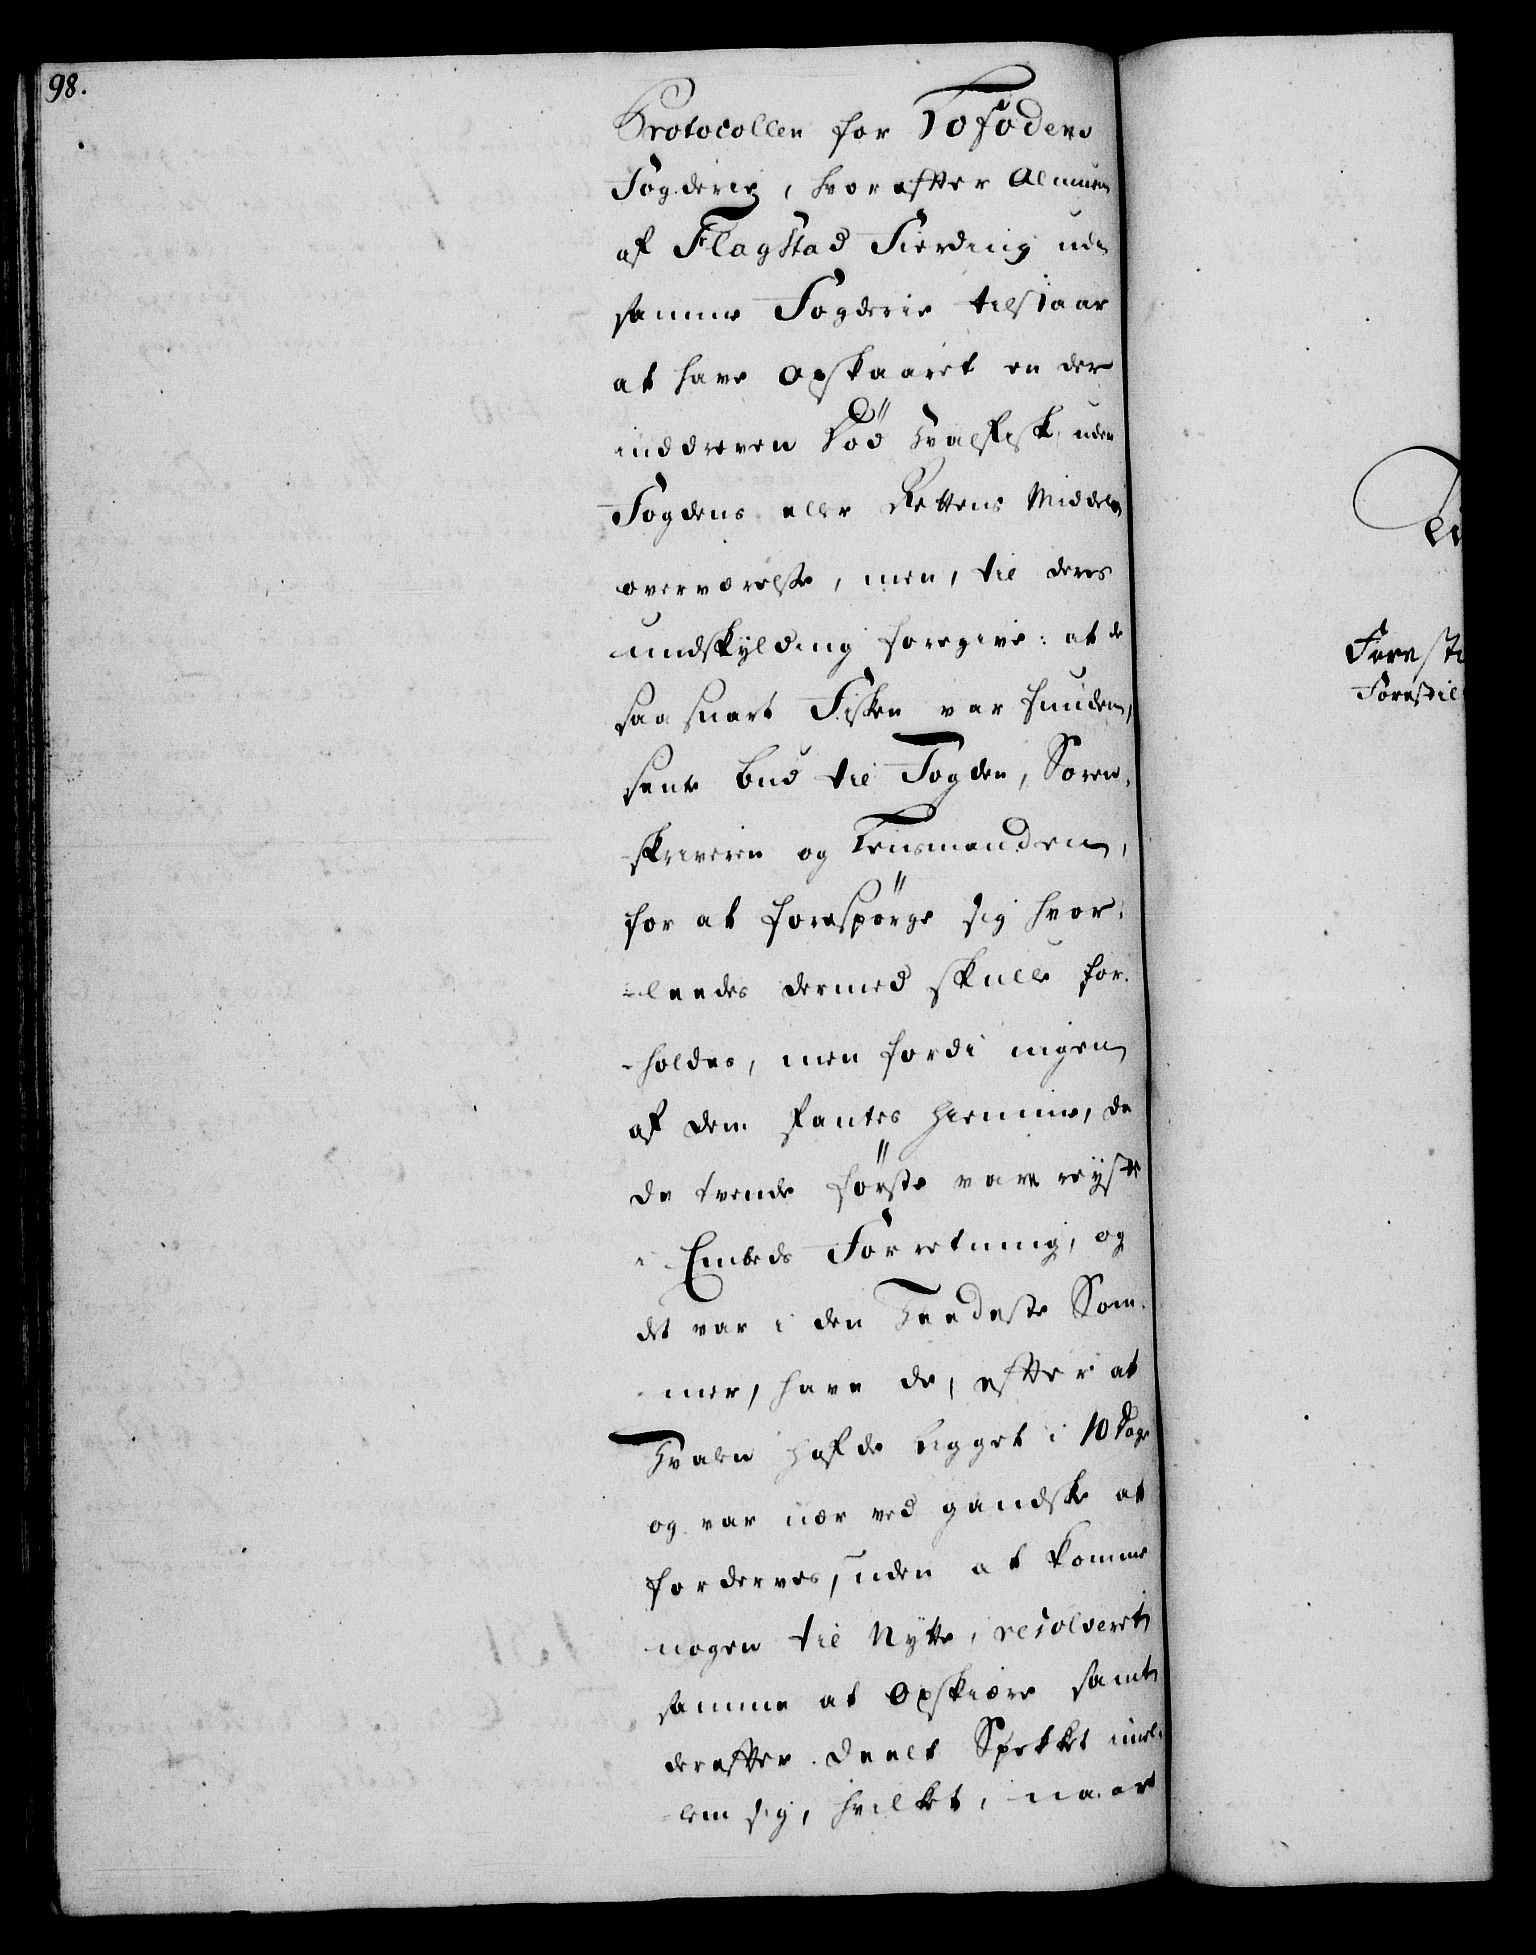 98.
Protocollen for Lofodens
Fogderie, hvorefter Almuen
af Flagstad Fierding udi
samme Fogderie tilstaar
at have opskaaret en der
inddreven død Hvalfisk, uden
Fogdens eller Rettens Middels
overværelse, men, til deres
undskylding foregive: at de
saa snart Fisken var funden,
sente bud til Fogden, Soren-
skriveren og Lensmanden,
for at forespørge sig hvor-
-leedes dermed skulle for-
-holdes, men fordi ingen
af dem fantes hiemme, da
de tvende første vare reyste
i Embeds Forretning, og
det var i den heedeste Som-
mer, have de, efter at
Hvalen hafde ligget i 10 Dage
og var nær ved gandske at
forderves, uden at komme
nogen til Nytte, resolveret
samme at opskiære samt
derefter deelt Spekket imel-
-lem sig, hvilket, naar
Forestil